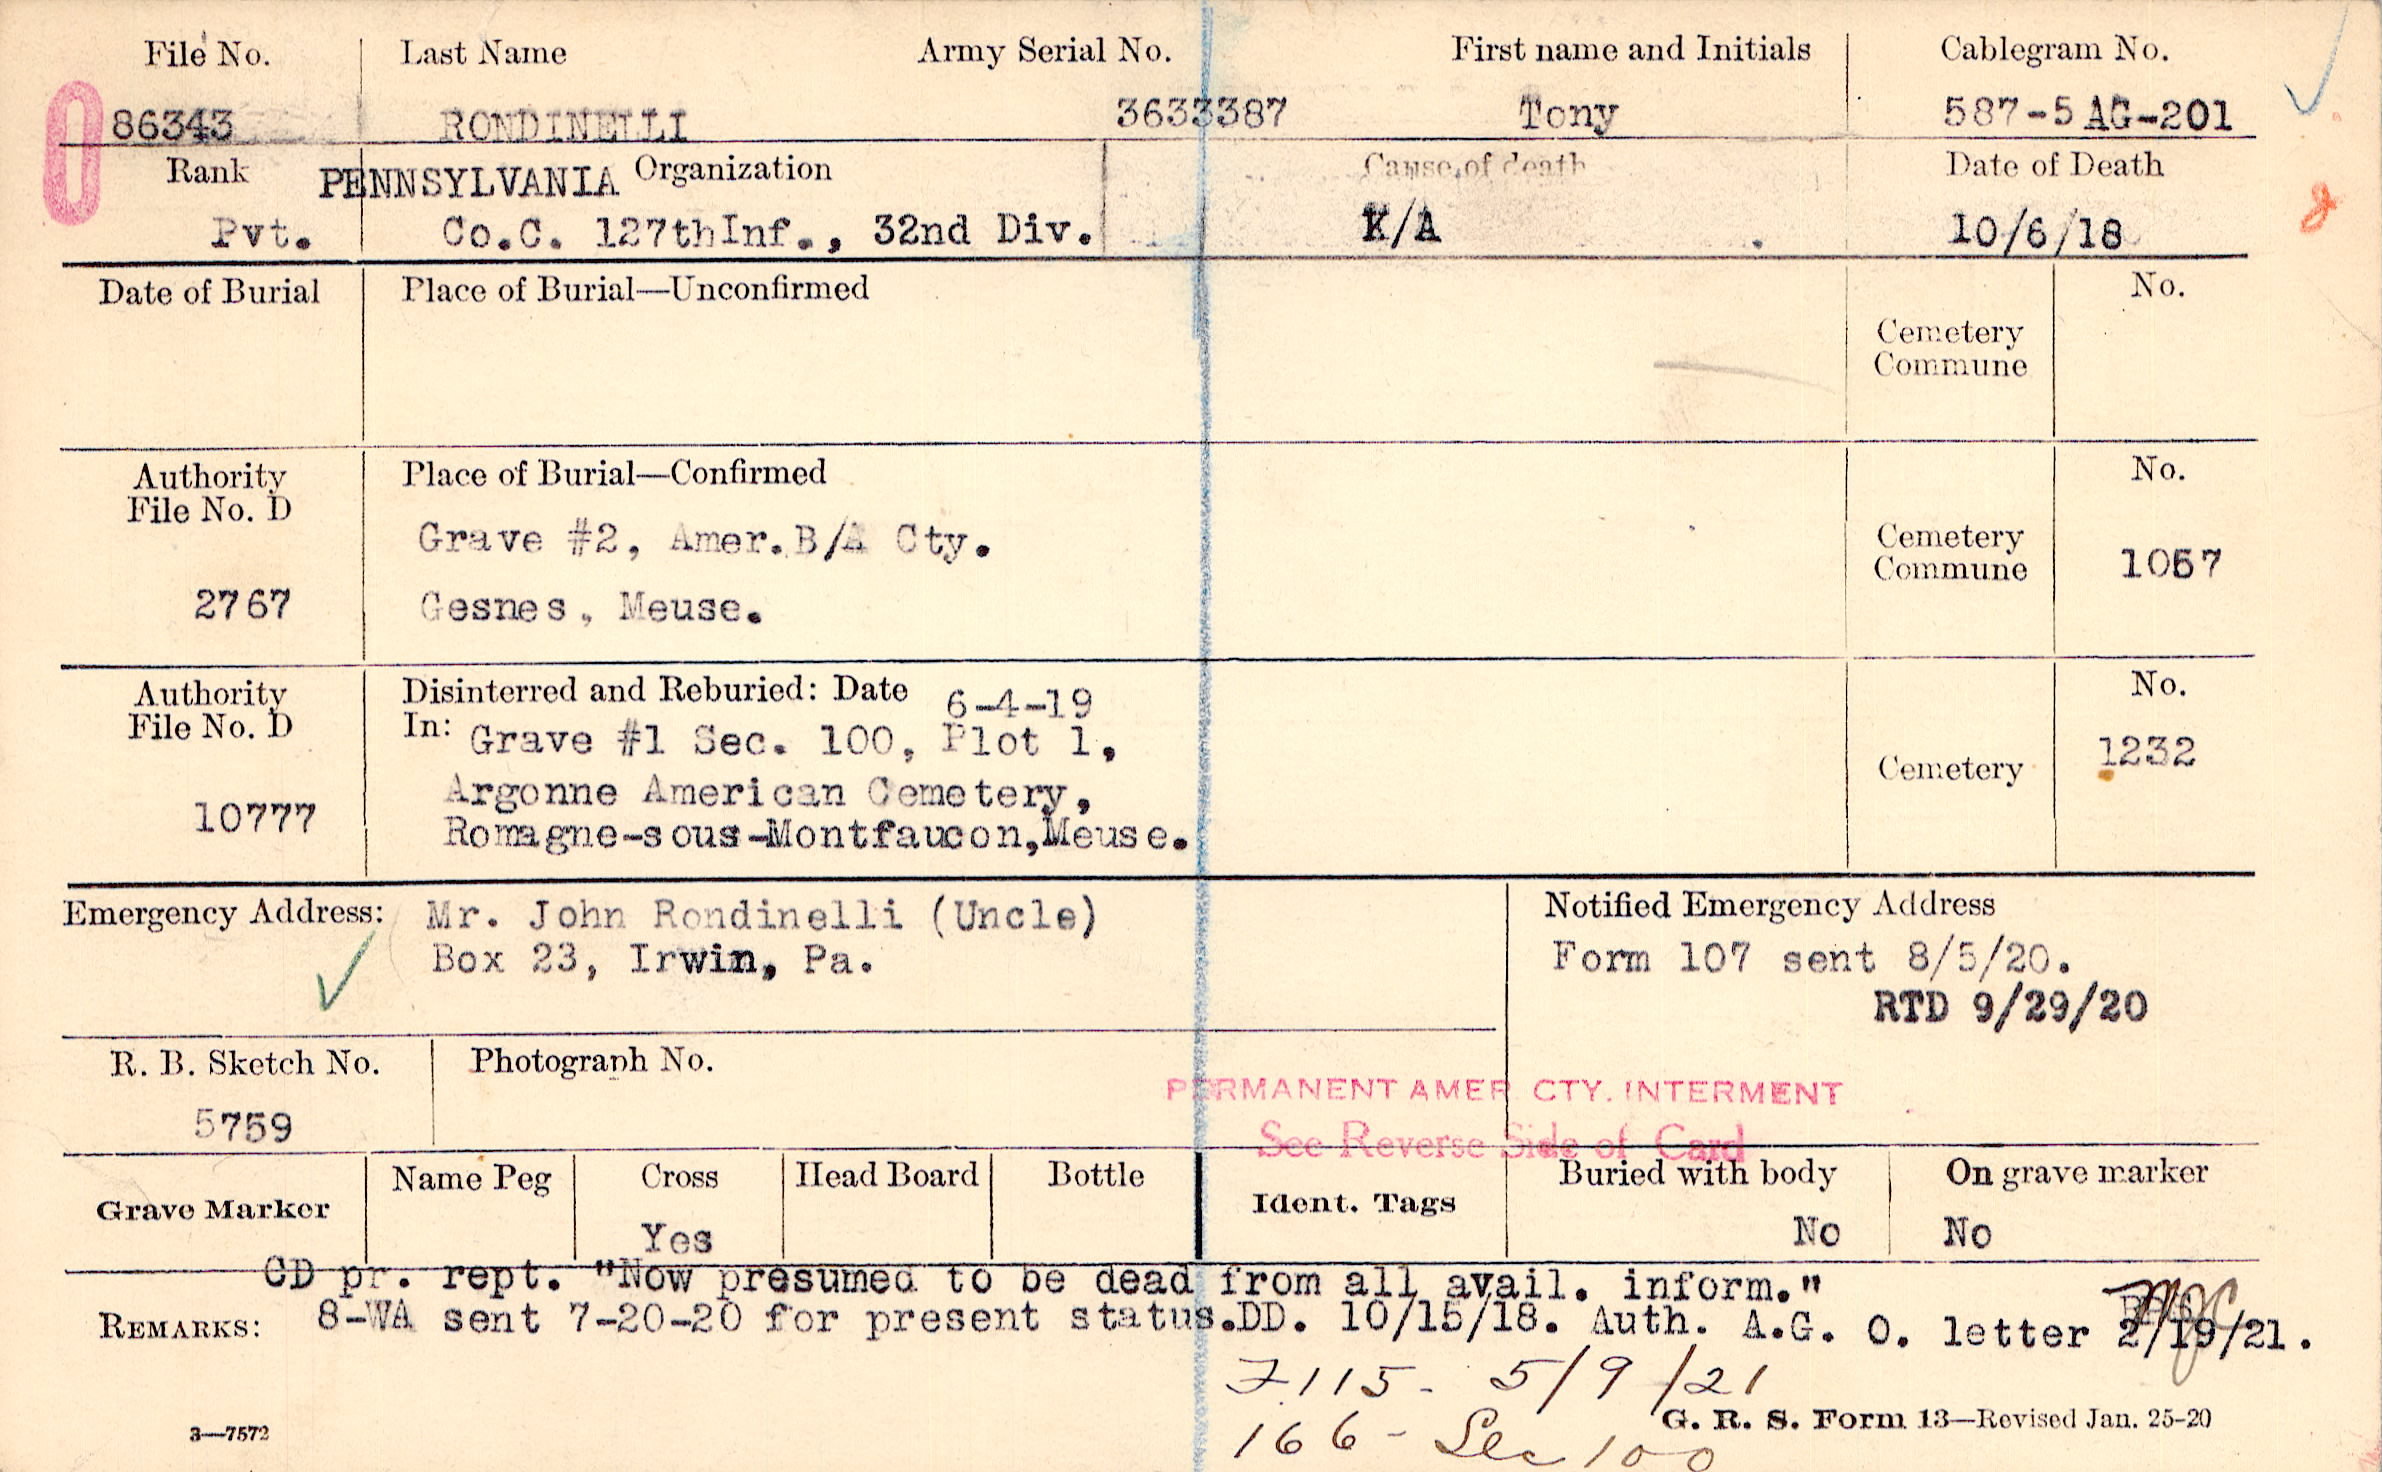 File No. Last Name Army Serial No. First name and Initials Cablegram No.
86343 RONDINELLI 3633387 Tony 587-5 AG-201
Rank PENNSYLVANIA Organization Cause of death Date of Death
Pvt. Co.C. 127thInf., 32nd Div. K/A 10/6/18
Date of Burial Place of Burial—Unconfirmed No.
Cemetery
Commune
Authority Place of Burial—Confirmed No.
File No. D
Grave #2, Amer.B/A Cty. Cemetery
Commune 1057
2767 Gesnes, Meuse.
Authority Disinterred and Reburied: Date 6-4-19 No.
File No. D In: Grave #1 Sec. 100, Plot 1, 1232
Cemetery
10777 Argonne American Cemetery,
Romagne-sous-Montfaucon,Meuse.
Emergency Address: Mr. John Rondinelli (Uncle) Notified Emergency Address
Box 23, Irwin, Pa. Form 107 sent 8/5/20.
RTD 9/29/20
R. B. Sketch No. Photograph No.
PERMANENT AMER CTY. INTERMENT
5759
See Reverse Side of Card
Grave Marker Name Peg Cross Head Board Bottle Ident. Tags Buried with body On grave marker
Yes No No
CD pr. rept. "Now presumed to be dead from all avail. inform."
REMARKS: 8-WA sent 7-20-20 for present status.DD. 10/15/18. Auth. A.G. O. letter 2/19/21.
F.115- 5/9/21
3—7572 G. R. S. Form 13—Revised Jan. 25-20
166- Sec 100